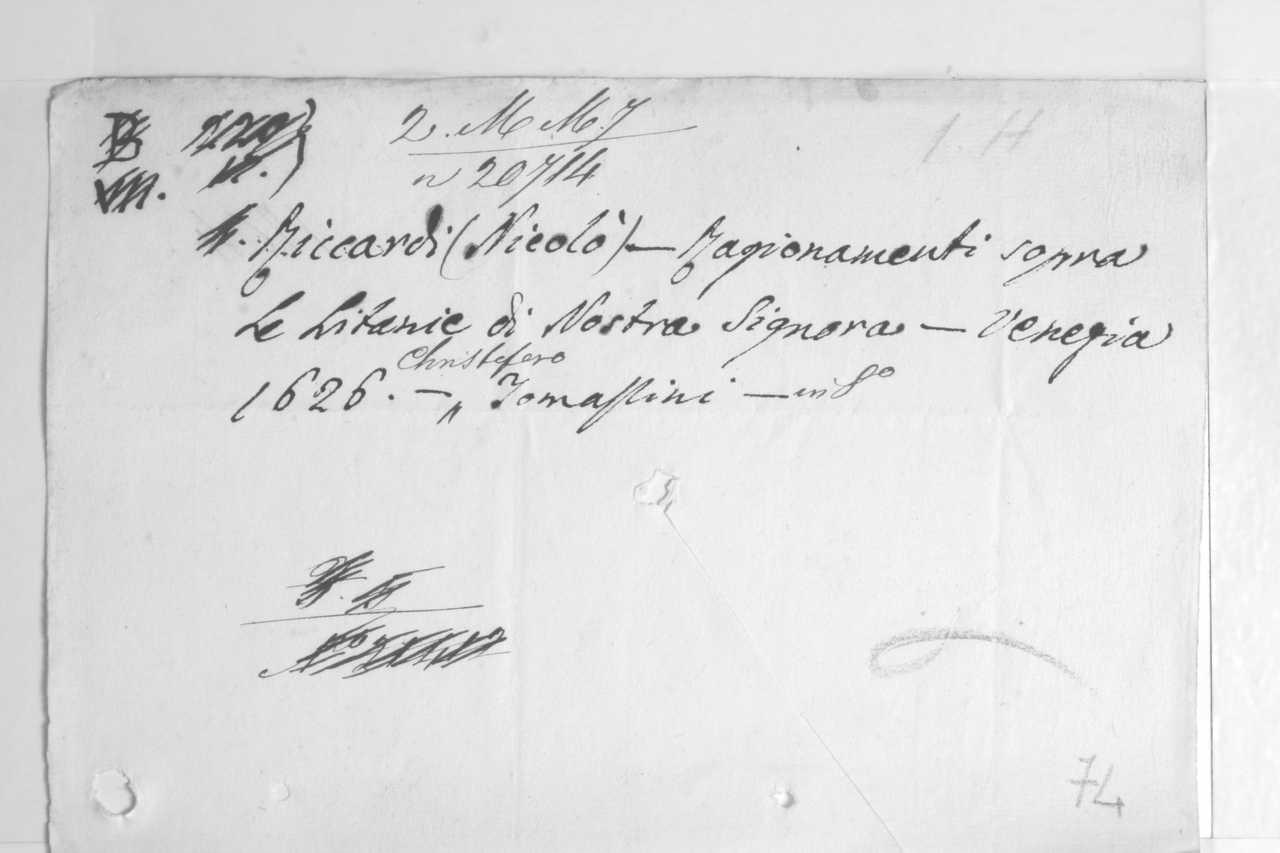 2. M M. 7
1. H
n 20714
Riccardi (Nicolò) — Ragionamenti sopra
le Litanie di Nostra Signora — Venezia
Christofero
1626. — „ Tomassini — in 8º
74